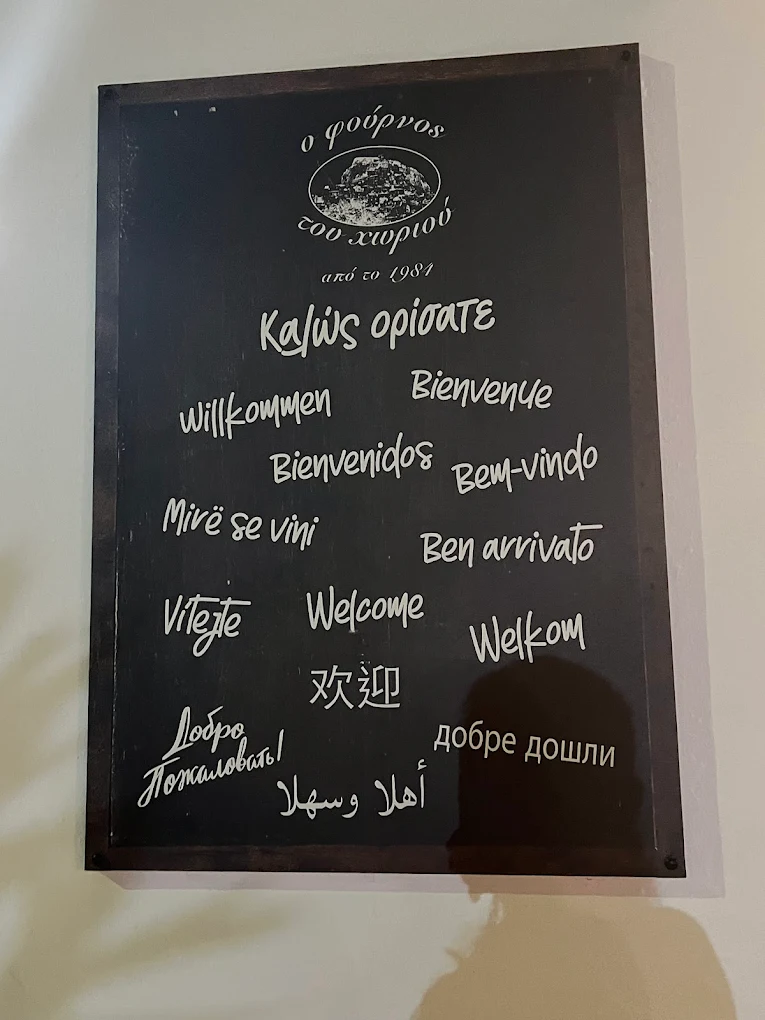 ο φούρνος
του χωριού
από το 1984
Καλώς ορίσατε
Willkommen
Bienvenue
Bienvenidos
Bem-vindo
Mirë se vini
Ben arrivato
Vítejte
Welcome
Welkom
欢迎
Добро
Пожаловать!
добре дошли
أهلا وسهلا